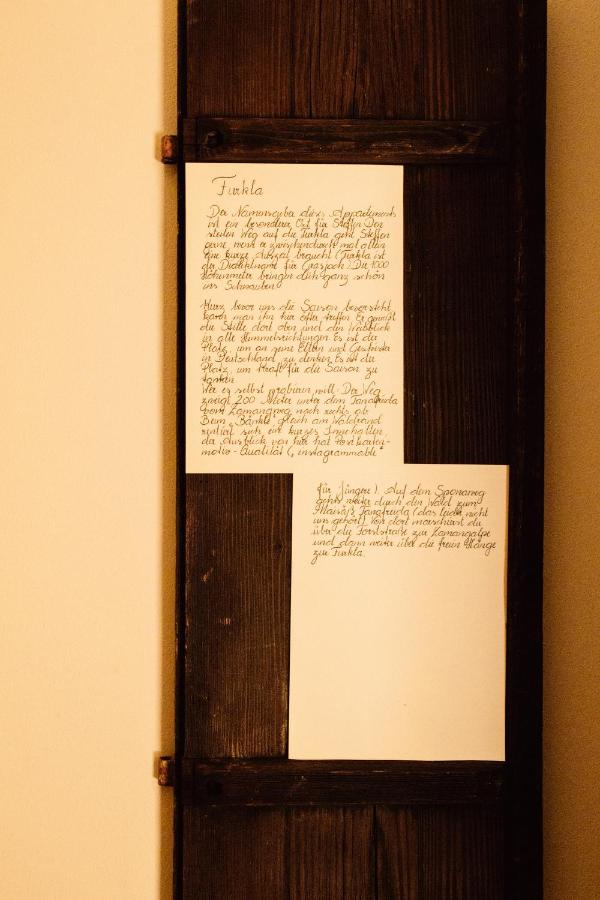 Furkla
Der Namensgeber dieses Appartements
ist ein besonderer Ort für Steffen. Den
steilen Weg auf die Furkla geht Steffen
gerne, wenn er zwischendurch mal allein
eine kurze Auszeit braucht (Furkla ist
der Dialektname für Grasjoch). Die 1000
Höhenmeter bringen dich ganz schön
ins Schnaufen.
Kurz bevor uns die Saison bevorsteht
kann man ihn hier öfter treffen. Er genießt
die Stille dort oben und den Weitblick
in alle Himmelsrichtungen. Es ist der
Platz, um an seine Eltern und Geschwister
in Deutschland zu denken. Es ist der
Platz, um Kraft für die Saison zu
tanken.
Wer es selbst probieren will: Der Weg
zweigt 200 Meter unter dem Tanafreida
vom Zamangweg nach rechts ab.
Beim Bänkle gleich am Waldrand
rentiert sich ein kurzes Innehalten,
der Ausblick von hier hat Postkarten-
motiv-Qualität („instagrammable“
für Jüngere). Auf dem Sponaweg
gehts weiter durch den Wald zum
Maisäß Tanafreida (das leider nicht
uns gehört). Von dort marschierst du
über die Forststraße zur Zamangalpe
und dann weiter über die freien Hänge
zur Furkla.